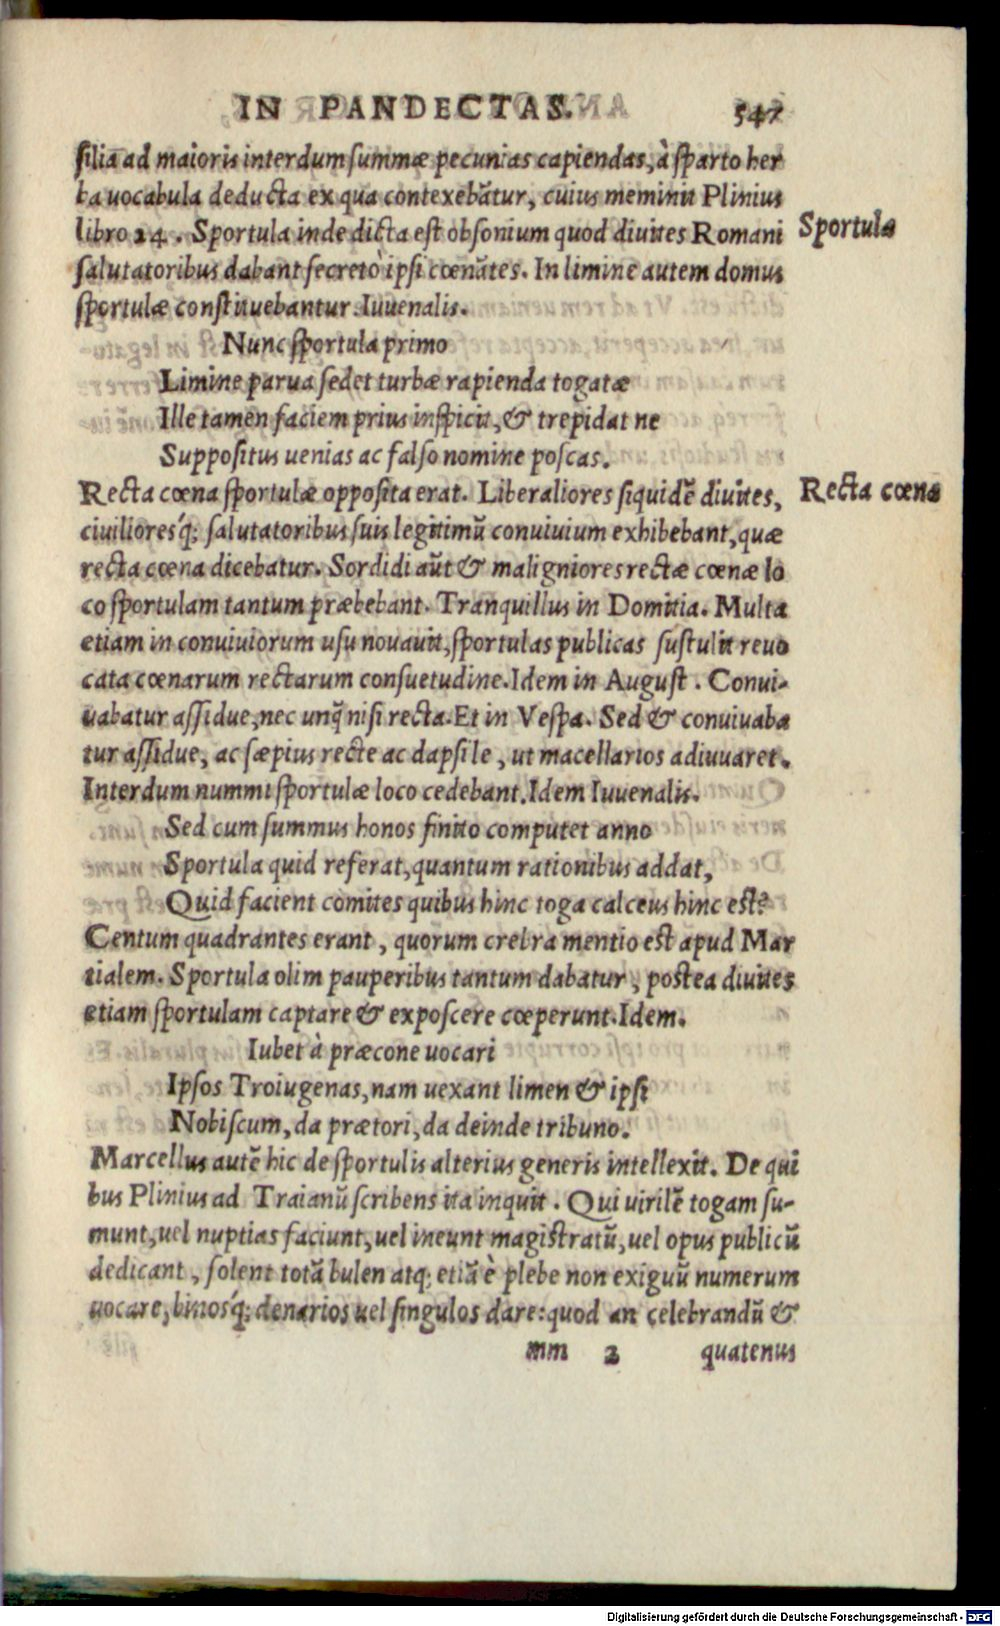 IN PANDECTAS. 547
siliā ad maioris interdum summæ pecunias capiendas, à sparto her
ba vocabula deducta ex qua contexebātur, cuius meminit Plinius
libro 24. Sportula inde dicta est obsonium quod divites Romani
Sportula
salutatoribus dabant secretò ipsi cœnātes. In limine autem domus
sportulæ constituebantur. Iuvenalis.
Nunc sportula primo
Limine parua sedet turbæ rapienda togatæ
Ille tamen faciem prius inspicit, & trepidat ne
Suppositus uenias ac falso nomine poscas.
Recta cœna sportulæ opposita erat. Liberaliores siquidē divites,
Recta cœna
civilioresq́; salutatoribus suis legitimū convivium exhibebant, quæ
recta cœna dicebatur. Sordidi aūt & maligniores rectæ cœnæ lo
co sportulam tantum præbebant. Tranquillus in Domitia. Multa
etiam in conviviorum usu novavit, sportulas publicas sustulit revo
cata cœnarum rectarum consuetudine. Idem in August. Convi-
vabatur assidue, nec unq̃ nisi recta. Et in Vespa. Sed & convivaba
tur assidue, ac sæpius recte ac dapsile, ut macellarios adiuvaret.
Interdum nummi sportulæ loco cedebant. Idem Iuvenalis.
Sed cum summus honos finito computet anno
Sportula quid referat, quantum rationibus addat,
Quid facient comites quibus hinc toga calceus hinc est?
Centum quadrantes erant, quorum crebra mentio est apud Mar
tialem. Sportula olim pauperibus tantum dabatur, postea divites
etiam sportulam captare & exposcere cœperunt. Idem.
Iubet à præcone vocari
Ipsos Troiugenas, nam vexant limen & ipsi
Nobiscum, da prætori, da deinde tribuno.
Marcellus autē hic de sportulis alterius generis intellexit. De qui
bus Plinius ad Traianū scribens ita inquit. Qui virilē togam su-
munt, vel nuptias faciunt, vel ineunt magistratū, vel opus publicū
dedicant, solent totā bulen atq; etiā è plebe non exiguū numerum
vocare, binosq́; denarios vel singulos dare: quod an celebrandū &
mm 2 quatenus
Digitalisierung gefördert durch die Deutsche Forschungsgemeinschaft - DFG